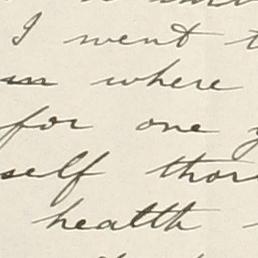 I went
in where
for one
self thor
health